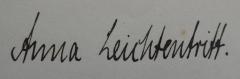 Anna Leichtentritt.